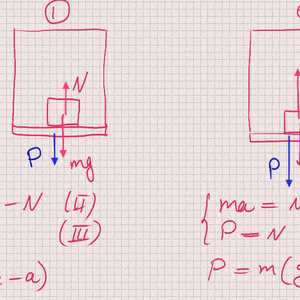 ①
N
P
mg
P
- N (II)
(III)
- a)
ma =
P = N
P = m(